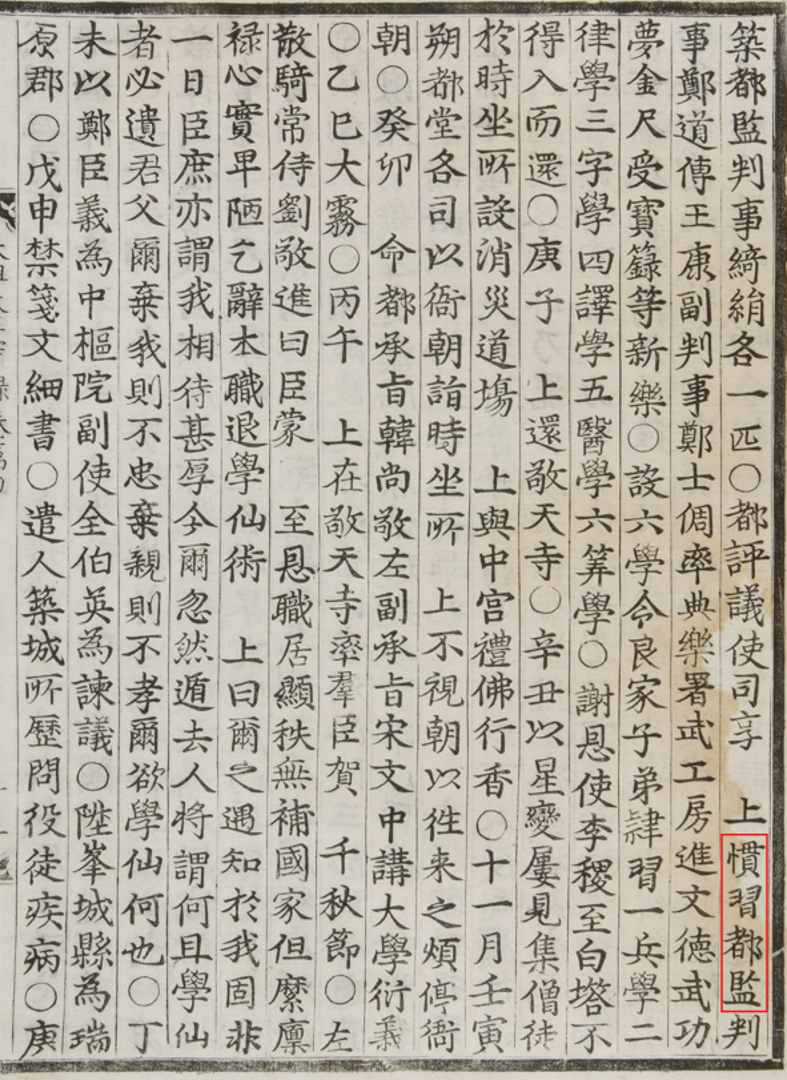 築都監判事綺絹各一匹〇都評議使司享 上慣習都監判
事鄭道傳王康副判事鄭士倜率典樂署武工房進文德武功
夢金尺受寶籙等新樂〇設六學令良家子弟肄習一兵學二
律學三字學四譯學五醫學六筭學〇謝恩使李稷至白塔不
得入而還〇庚子 上還敬天寺〇辛丑以星變屢見集僧徒
於時坐所設消災道塲 上與中宮禮佛行香〇十一月壬寅
朔都堂各司以衙朝詣時坐所 上不視朝以徃来之煩停衙
朝〇癸卯 命都承旨韓尚敬左副承旨宋文中講大學衍義
〇乙巳大霧〇丙午 上在敬天寺率羣臣賀 千秋節〇左
散騎常侍劉敬進曰臣蒙 至恩職居顯秩無補國家但縻廩
禄心實卑陋乞辭本職退學仙術 上曰爾之遇知於我固非
一日臣庶亦謂我相待甚厚今爾忽然遁去人將謂何且學仙
者必遺君父爾棄我則不忠棄親則不孝爾欲學仙何也〇丁
未以鄭臣義為中樞院副使全伯英為諫議〇陞峯城縣為瑞
原郡〇戊申禁箋文細書〇遣人築城所歷問役徒疾病〇庚